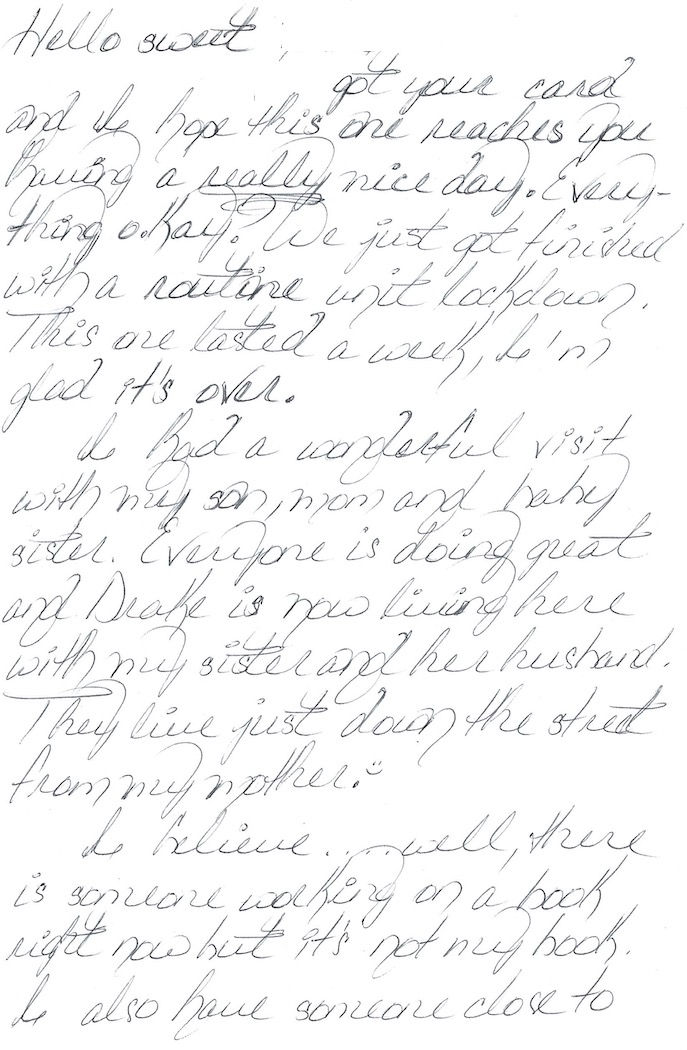 Hello sweet
got your card
and I hope this one reaches you
having a really nice day. Every-
thing o.kay? We just got finished
with a routine unit lockdown.
This one lasted a week, I'm
glad it's over.
I had a wonderful visit
with my son, mom and baby
sister. Everyone is doing great
and Drake is now living here
with my sister and her husband.
They live just down the street
from my mother.
I believe.... well, there
is someone working on a book
right now but it's not my book.
I also have someone close to